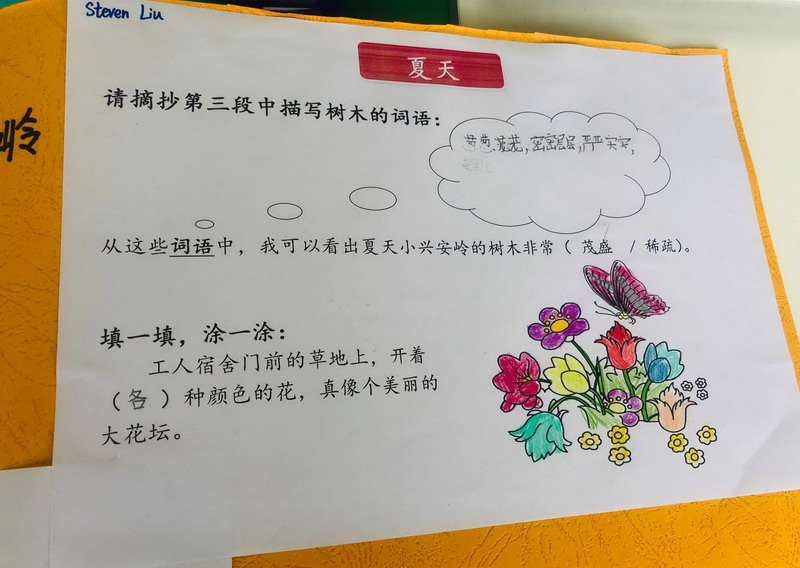 Steven Liu
岭
夏天
请摘抄第三段中描写树木的词语：
葱葱茏茏，密密层层，严严实实，
从这些词语中，我可以看出夏天小兴安岭的树木非常（ 茂盛 / 稀疏）。
填一填，涂一涂：
工人宿舍门前的草地上，开着
（ 各 ）种颜色的花，真像个美丽的
大花坛。